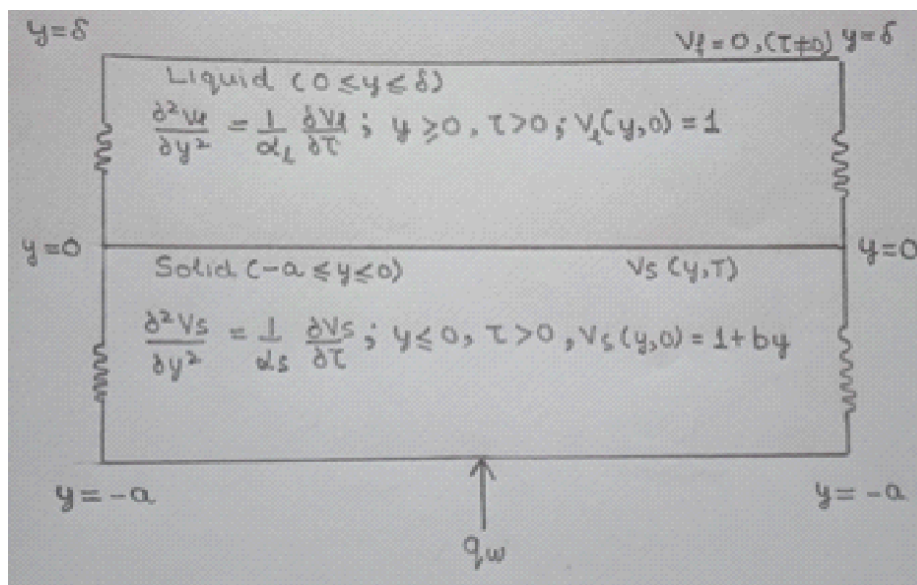 y=δ
V_l=0, (τ≠0) y=δ
Liquid (0≤y≤δ)
∂²V_l/∂y² = 1/α_l ∂V_l/∂τ ; y≥0, τ>0 ; V_l(y,0)=1
y=0
y=0
Solid (-a≤y≤0)
V_s(y,τ)
∂²V_s/∂y² = 1/α_s ∂V_s/∂τ ; y≤0, τ>0, V_s(y,0)=1+by
y=-a
y=-a
q_w